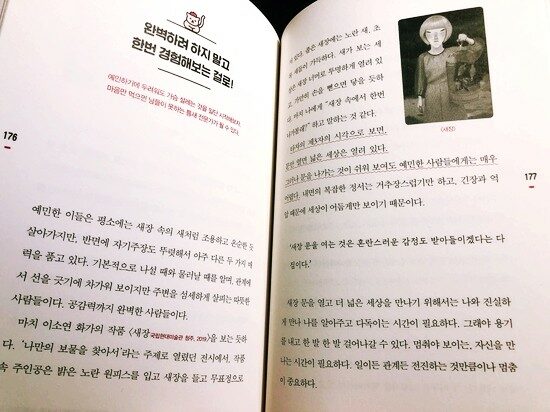 완벽하려 하지 말고
한번 경험해보는 걸로!
예민하기에 두려워도 가슴 설레는 것을 일단 시작해보자.
마음만 먹으면 남들이 못하는 틈새 전문가가 될 수 있다.
176
예민한 이들은 평소에는 새장 속의 새처럼 조용하고 온순한 듯
살아가지만, 반면에 자기주장도 뚜렷해서 아주 다른 두 가지 매
력을 품고 있다. 기본적으로 나설 때와 물러날 때를 알며, 관계에
서 선을 긋기에 차가워 보이지만 주변을 섬세하게 살피는 따뜻한
사람들이다. 공감력까지 완벽한 사람들이다.
마치 이소연 화가의 작품 〈새장 국립현대미술관 청주, 2019〉을 보는 듯하
다. '나만의 보물을 찾아서'라는 주제로 열렸던 전시에서, 작품
속 주인공은 밝은 노란 원피스를 입고 새장을 들고 무표정으로
있다. 좁은 새장에는 노란 새,
새들이 가득하다. 새가 보는 세
상은 새장 너머로 투명하게 열려 있
고, 가만히 손을 뻗으면 닿을 듯하
다. 마치 나에게 "새장 속에서 한번
나가볼래?" 하고 말하는 것 같다.
타자의 제3자의 시각으로 보면,
문만 열면 넓은 세상은 열려 있다.
그러나 문을 나가는 것이 쉬워 보여도 예민한 사람들에게는 매우
어렵다. 내면의 복잡한 정서는 거추장스럽기만 하고, 긴장과 억
압 때문에 세상이 어둡게만 보이기 때문이다.
〈새장〉
177
'새장 문을 여는 것은 혼란스러운 감정도 받아들이겠다는 다
짐이다.'
새장 문을 열고 더 넓은 세상을 만나기 위해서는 나와 진실하
게 만나 나를 알아주고 다독이는 시간이 필요하다. 그래야 용기
를 내고 한 발 한 발 걸어나갈 수 있다. 멈춰야 보이는, 자신을 만
나는 시간이 필요하다. 일이든 관계든 전진하는 것만큼이나 멈춤
이 중요하다.